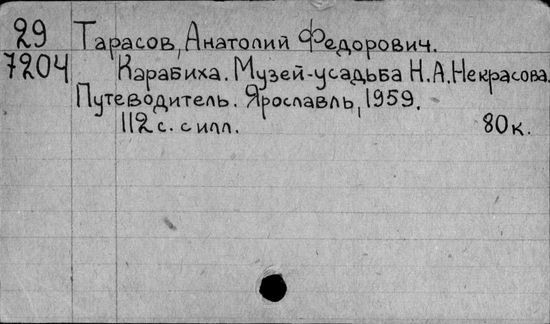 29 Тарасов, Анатолий Федорович.
7204 Карабиха. Музей-усадьба Н.А.Некрасова.
Путеводитель. Ярославль, 1959.
112 с. с илл. 80 к.